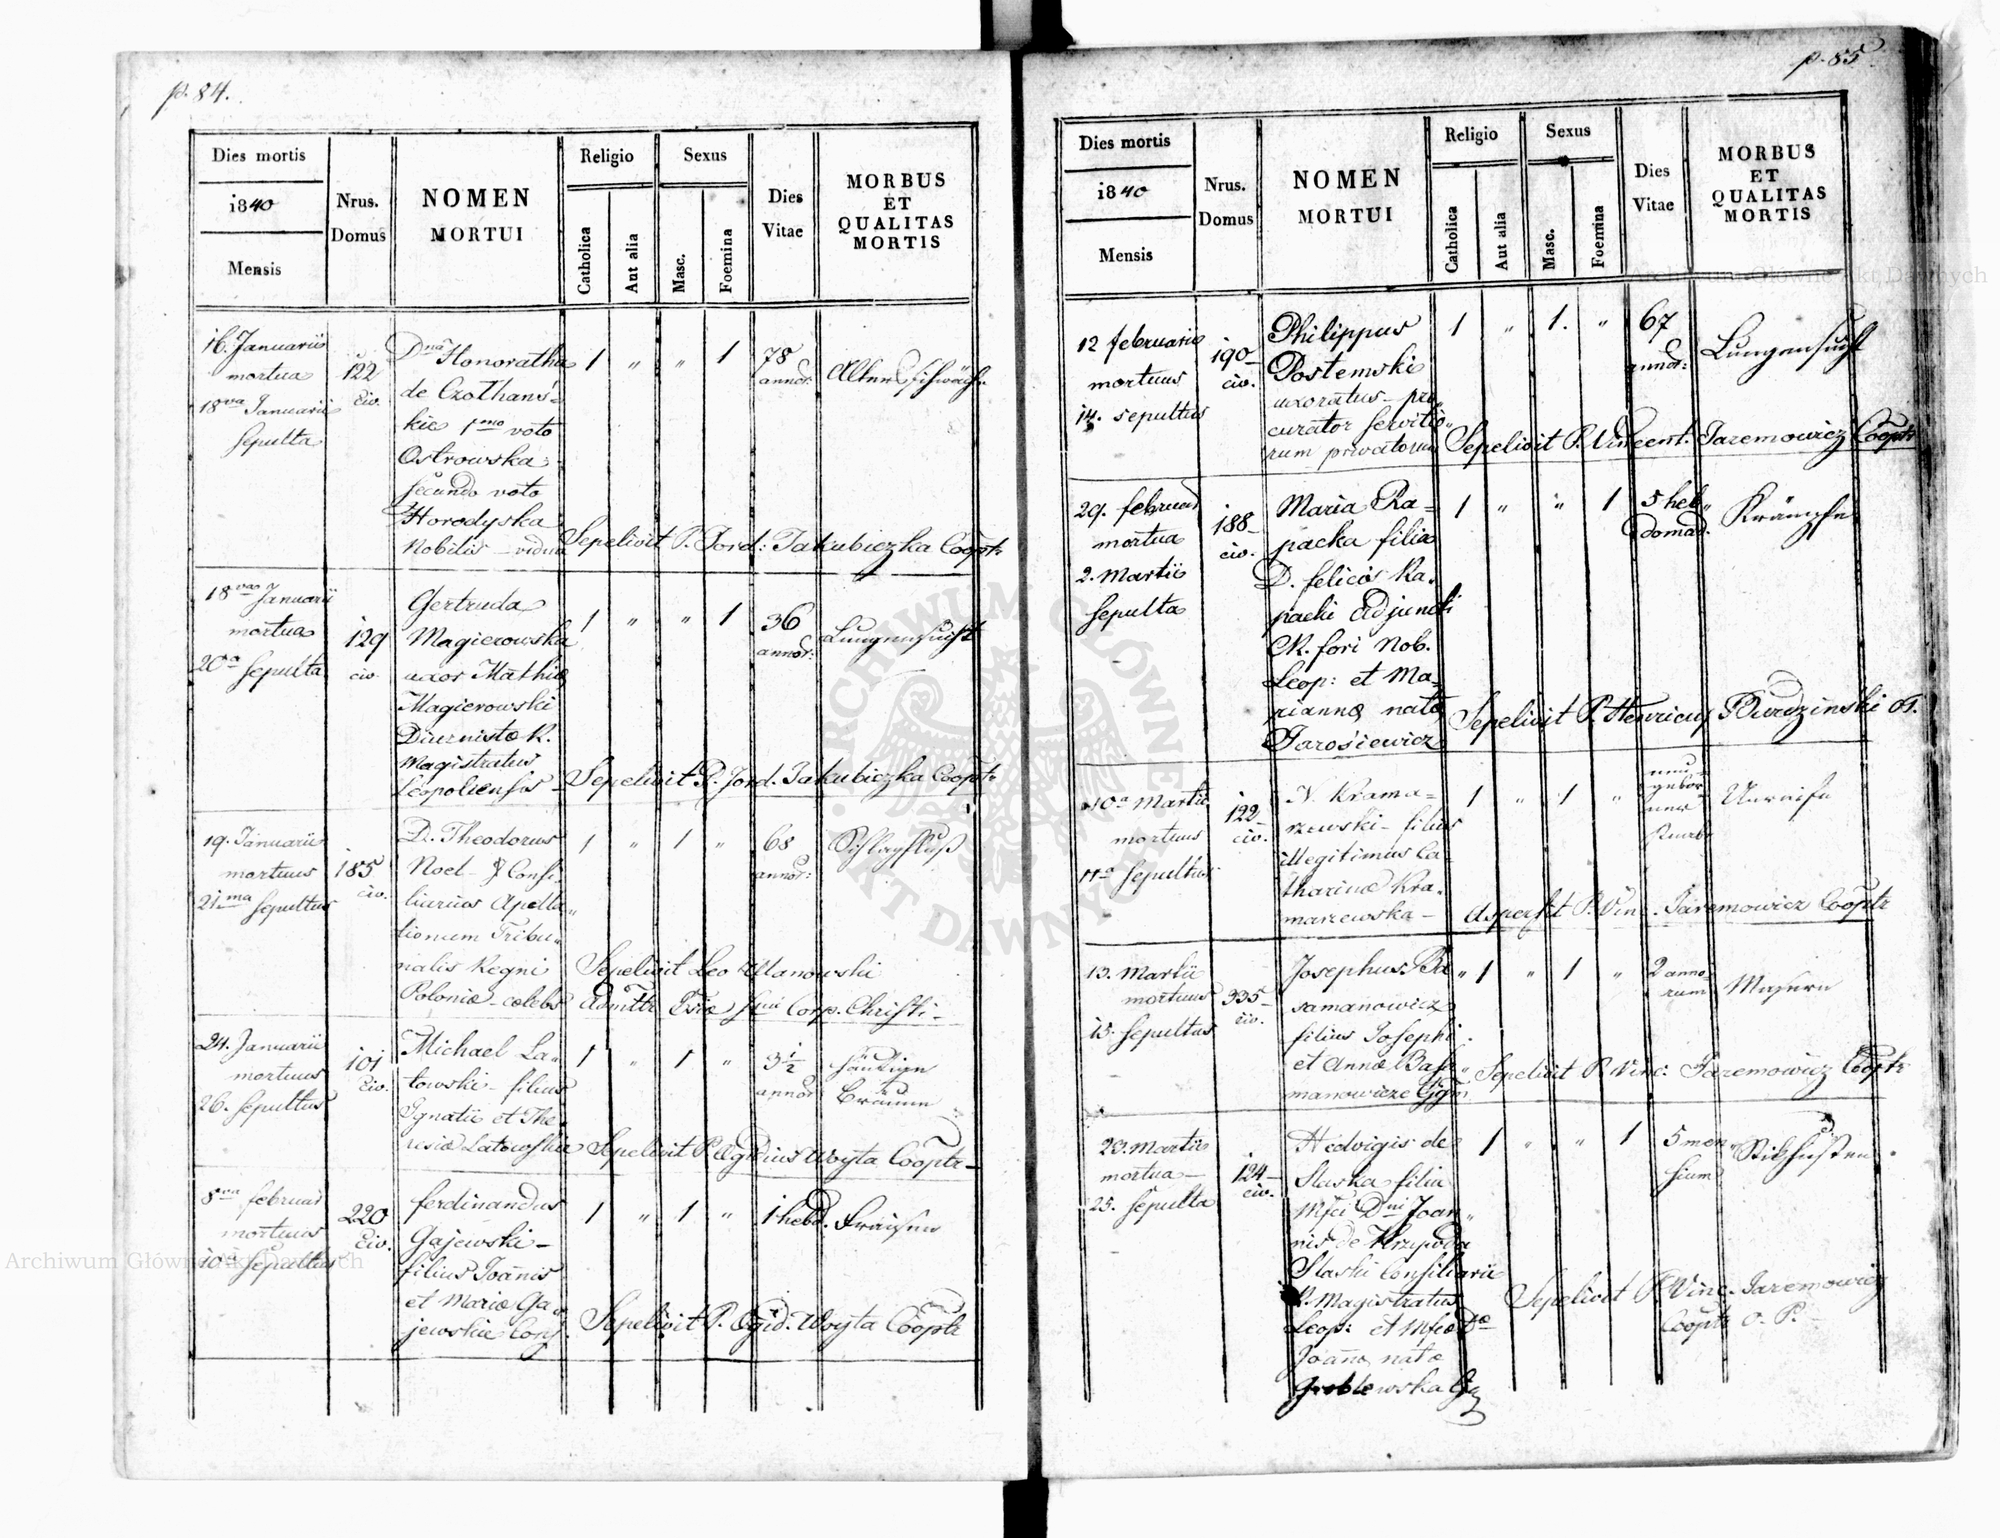 p. 84.
Dies mortis
1840
Mensis
Nrus.
Domus
NOMEN
MORTUI
Religio
Catholica
Aut alia
Sexus
Masc.
Foemina
Dies
Vitae
MORBUS
ET
QUALITAS
MORTIS
16. Januarii
mortua
18va Januarii
sepulta
122
Civ.
Dna Honoratha
de Czothańs-
kie 1mo voto
Ostrowska
secundo voto
Horodyska
Nobilis - vidua
1 " " 1
78
annor:
Altersschwäche
Sepelivit P. Jord: Jakubiczka Cooptr
18va Januarii
mortua
20a sepulta
129
civ.
Gertruda
Magierowska
uxor Mathiae
Magierowski
Diurnistae R.
Magistratus
Leopoliensis
1 " " 1
36
annor:
Lungensucht
Sepelivit P. Jord. Jakubiczka Cooptr
19. Januarii
mortuus
21ma sepultus
185
civ.
D. Theodorus
Noel - Consi-
liarius Apella-
tionum Tribu-
nalis Regni
Poloniae - coelebs
1 " 1 "
68
annor:
Schlagfluß
Sepelivit Leo Ulanowski
Admttr Corp. Christi -
24. Januarii
mortuus
26. sepultus
101
Civ.
Michael La-
towski - filius
Ignatii et The-
resiae Latowskie
1 " 1 "
3 1/2
annor
häutige
Bräune
Sepelivit P. Egidius Woyta Cooptr -
8va februar
mortuus
10a sepultus
220
Civ.
ferdinandus
Gajewski -
filius Joannis
et Mariae Ga-
jewskie Conj.
1 " 1 "
1 hebd.
Fraisen
Sepelivit P. Egid. Woyta Cooptr
p. 85
Dies mortis
1840
Mensis
Nrus.
Domus
NOMEN
MORTUI
Religio
Catholica
Aut alia
Sexus
Masc.
Foemina
Dies
Vitae
MORBUS
ET
QUALITAS
MORTIS
12 februarii
mortuus
14. sepultus
190
civ.
Philippus
Postemski
uxoratus - pro-
curator servitio-
rum privatorum
1 " 1. "
67
annor:
Lungensucht
Sepelivit P. Vincent. Jaremowicz Cooptr
29. februar
mortua
2. Martii
sepulta
188
civ.
Maria Ra-
packa filia
D. felicis Ra-
packi Adjuncti
CR. fori Nob.
Leop: et Ma-
riannae nata
Jarosiewicz
1 " " 1
5 heb-
domad.
Krämpfe
Sepelivit P. Henricus Burdzinski
10a Martii
mortuus
11a sepultus
122
civ.
N. Krama-
rzewski - filius
illegitimus Ca-
tharinae Kra-
marzewska -
1 " 1 "
neu-
gebor-
ner
Knabe
Unreife
Aspersit P. Vinc. Jaremowicz Cooptr
13. Martii
mortuus
15. sepultus
335
Civ.
Josephus Ba-
samanowicz
filius Josephi
et Annae Basa-
manowicze Conj.
1 " 1 "
2 anno-
rum
Masern
Sepelivit P. Vinc: Jaremowicz Cooptr
23. Martii
mortua -
25. sepulta
124
civ.
Hedvigis de
Slaska filia
Mfci Dni Joan-
nis de
Slaski Consiliarii
R. Magistratus
Leop: et Mfcae Dae
Joannae natae
Groblewska
1 " " 1
5 men-
sium
Stickhusten
Sepelivit P. Vinc. Jaremowicz
Cooptr O. P. -
Archiwum Główne Akt Dawnych
Archiwum Główne Akt Dawnych
ARCHIWUM GŁÓWNE AKT DAWNYCH